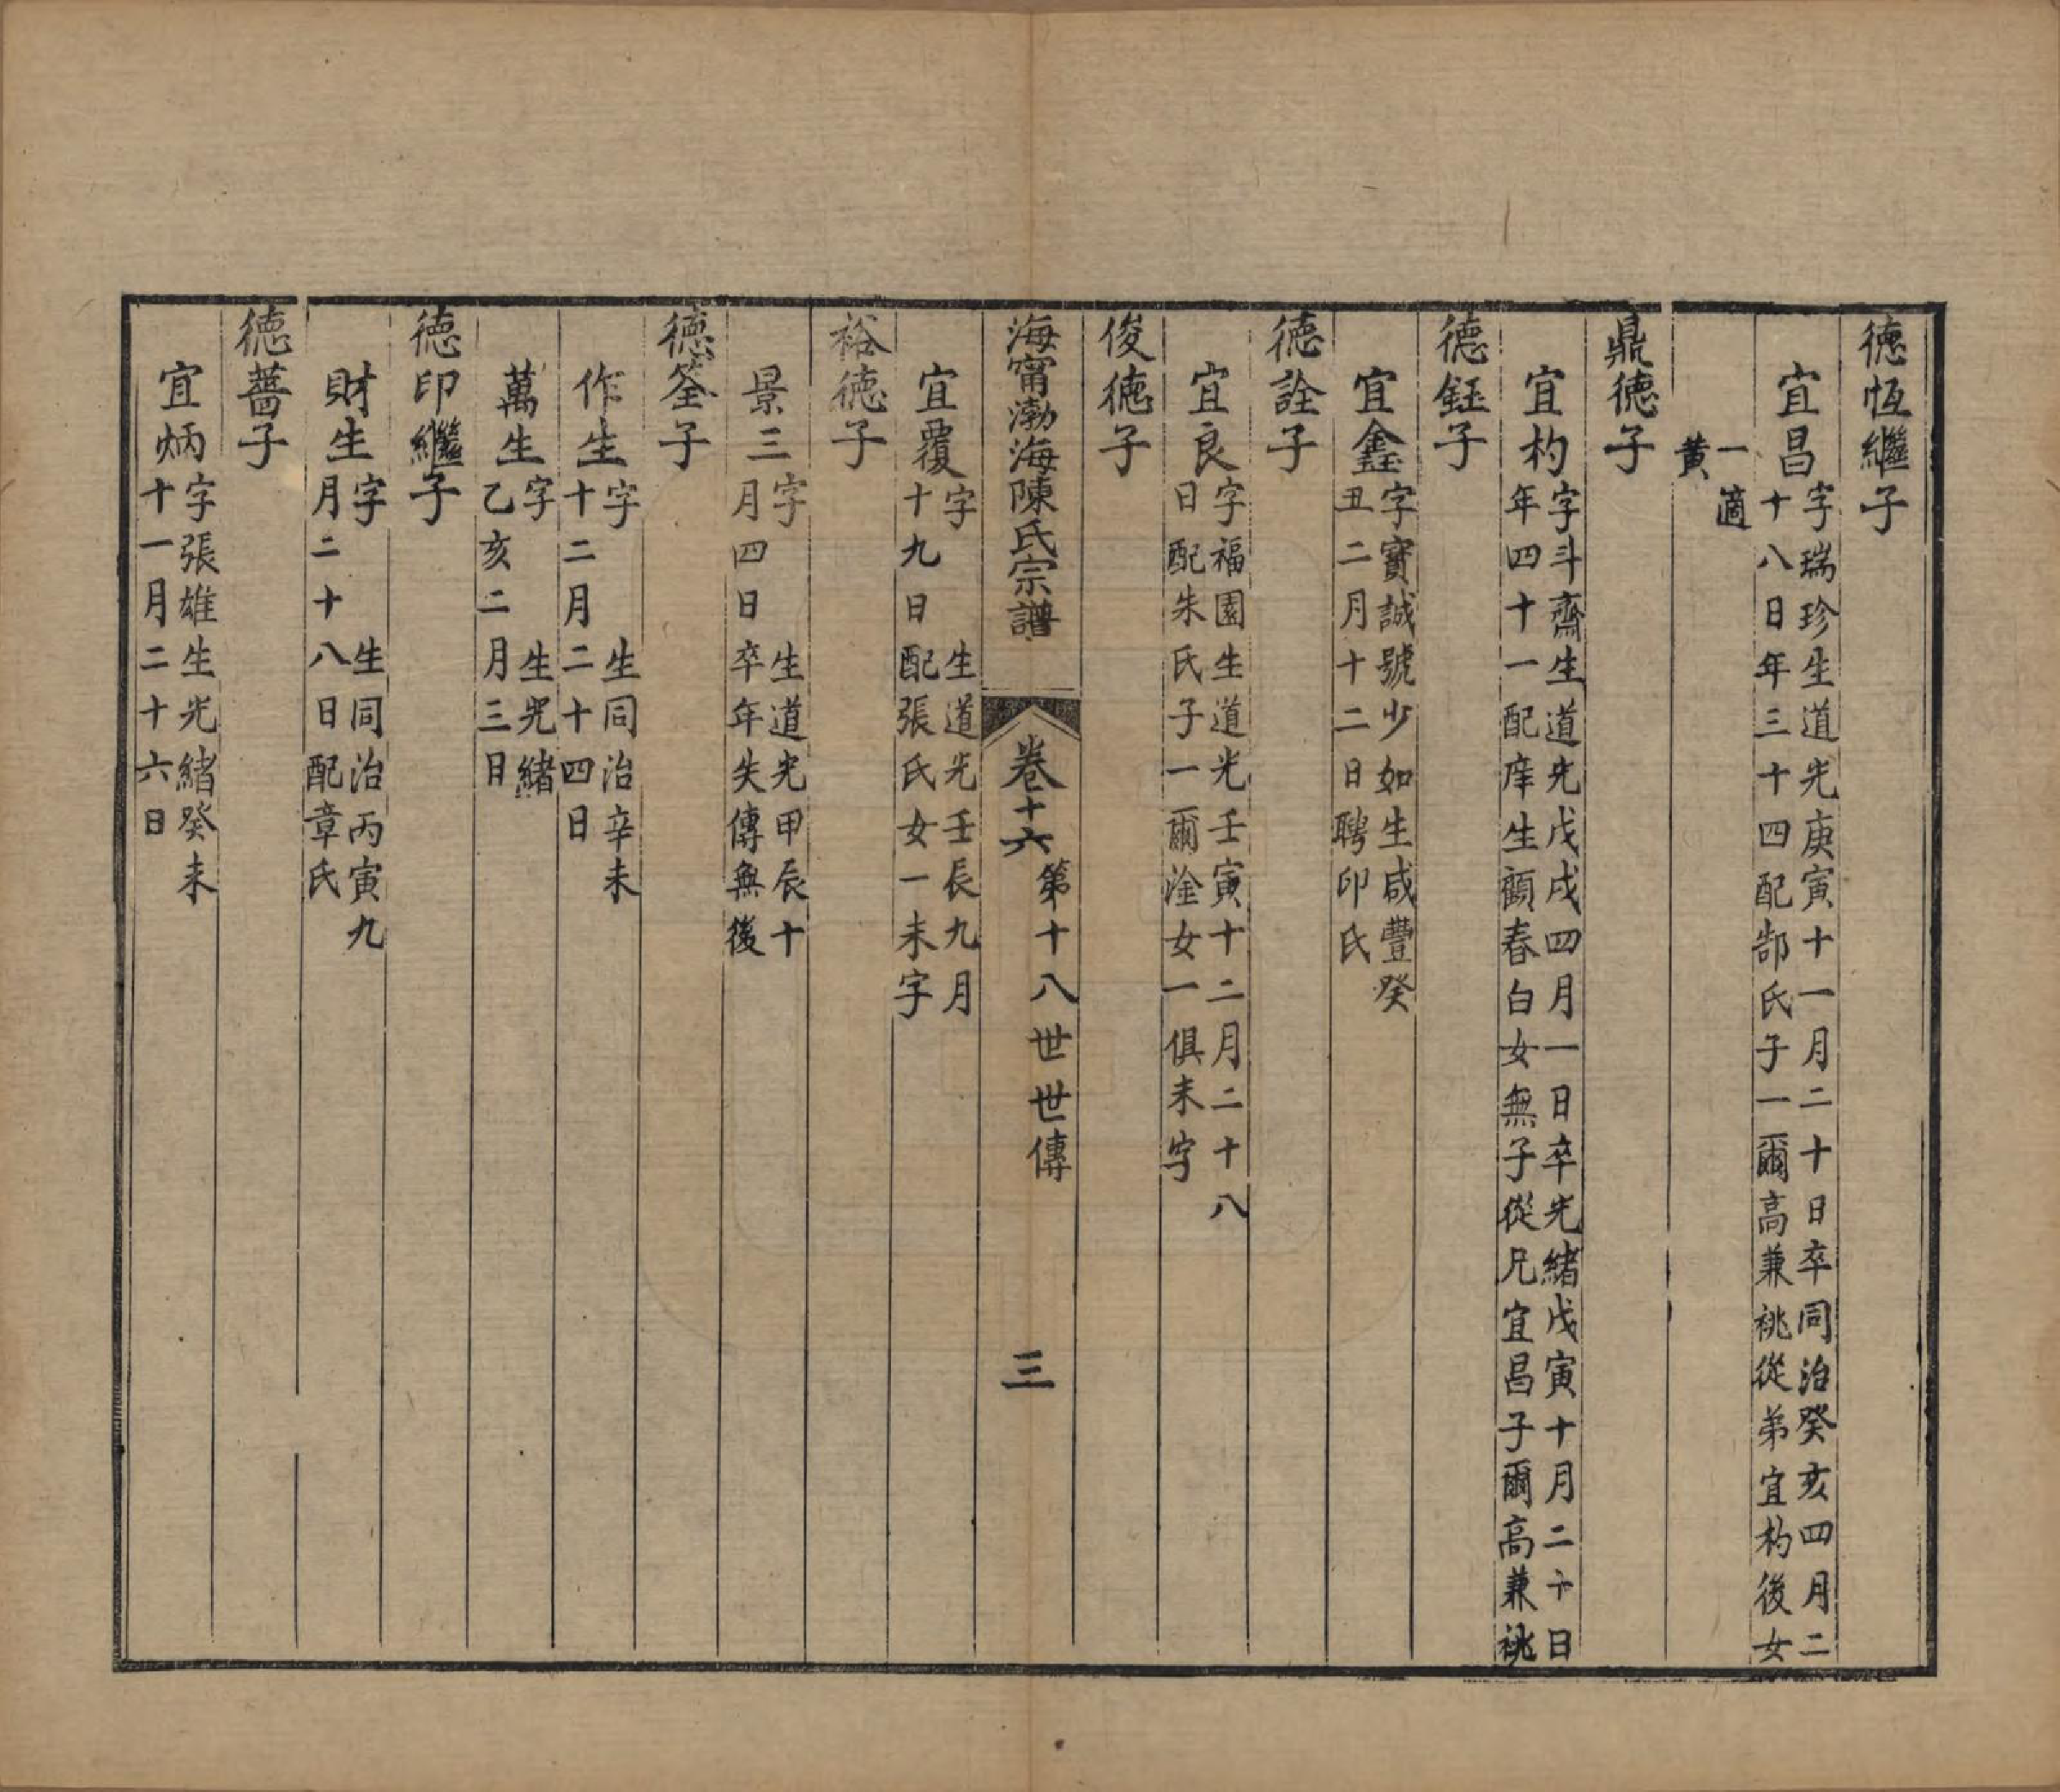 德恆繼子
宜昌
字瑞珍生道光庚寅十一月二十日卒同治癸亥四月二
十八日年三十四配郜氏子一爾高兼祧從弟宜杓後女
一適
黃
鼎德子
宜杓
字斗齋生道光戊戌四月一日卒光緒戊寅十月二十日
年四十一配庠生顧春白女無子從兄宜昌子爾高兼祧
德鈺子
宜鑫
字寶誠號少如生咸豐癸
丑二月十二日聘印氏
德詮子
宜良
字福園生道光壬寅十二月二十八
日配朱氏子一爾淦女一俱未字
俊德子
海甯渤海陳氏宗譜
卷十六
第十八世世傳
三
宜覆
字 生道光壬長九月
十九日配張氏女一未字
裕德子
景三
字 生道光甲辰十
月四日卒年失傳無後
德筌子
作生
字 生同治辛未
十二月二十四日
萬生
字 生光緒
乙亥二月三日
德印繼子
財生
字 生同治丙寅九
月二十八日配章氏
德薔子
宜炳
字張雄生光緒癸未
十一月二十六日